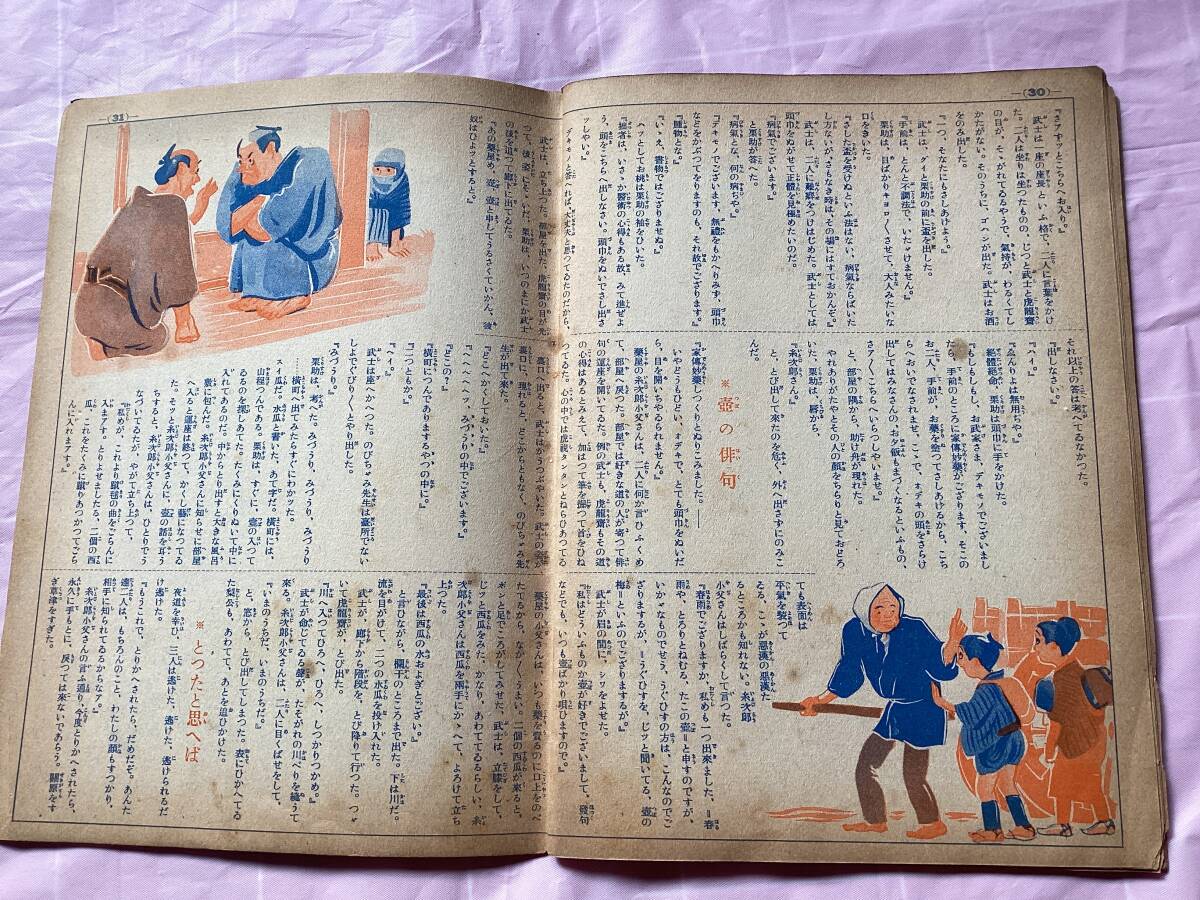 (30)
『さアヤッとこちらへお入り。』
武士は一座の座長といふ格で、二人に言葉をかけ
た。二人は坐りは坐つたものの、じつと武士と虎龍齋
の目が、そゝがれてるるやうで、氣持が、わるくてし
かたがない。そのうちに、ゴハンが出た。武士はお酒
をのみ出した。
『一つ、そなたにもさしあげよう。』
武士は、グイと栗助の前に盃を出した。
『手前は、とんと不調法で、いたゞけません。』
栗助は、目ばかりキョロ〳〵させて、大人みたいな
口をきいた。
『さした盃を受けぬといふ法はない、病氣ならばいた
し方ないが、さもなき時は、その場にはすておかんぞ。』
武士は、二人に難癖をつけはじめた。武士としては
頭巾をぬがせて正體を見極めたいのだ。
『病氣でございます。』
と栗助が答へた。
『病氣とな、何の病ぢや。』
『デキモノでございます。無禮をもかへりみず、頭巾
などをかぶつてをりますのも、それ故でございます。』
『腫物とな。』
『いゝえ、書物ではござりませぬ。』
ヘッとしてお桃は栗助の袖をひいた。
『拙者は、いさゝか醫術の心得もある故、みて進ぜよ
う、頭をこちらへ出しなさい。頭巾をぬいでさし出さ
ッしやい。』
デキモノと答へれば、大丈夫と思つてるたのだから、
それ以上の答は考へてるなかつた。
『出しなさい。』
『ハイ。』
『ゑんりよは無用ぢや。』
總體絶命、栗助は頭巾に手をかけた。
『もしもしもし、お武家さま、デキモノでございまし
たら、手前のところに家傳妙藥がございます、そこの
お二人、手前が、お藥を塗つてさしあげるから、こち
らへおいでなされませ、こゝで、オデキの頭をさらけ
出してはみなさんの、お飯もまづくなるといふもの、
さアァ〳〵こちらへいらつしやいませ。』
と、部屋の隅から、助け舟が現れた。
やれありがたやとその人の顔をちらりと見ておどろ
いた、栗助は、唇から、
『糸次郎さん。』
と、とび出して來たのを危く、外へ出さずにのみこ
んだ。
※ 壺の俳句
『家傳妙藥じつくりとぬりこみました。――
いやどうもひどい、オデキで、とても頭巾をぬいだ
ら、目を開いちやゐられません。』
藥屋の糸次郎小父さんは、二人に何か言ひふくめ
て、部屋へ戻つた。部屋では好きな道の人が寄つて俳
句の運座を開いてるた。例の武士も、虎龍齋もその道
の心得はあるとみえて、加はつて筆を握つて首をひね
つてるた。心の中では虎視タンタンとねらひあつてる
ても表面は
平氣を裝つて
るる、こゝが惡漢の惡漢た
るところかも知れない。糸次郎
小父さんはしばらくして言つた。
『春雨でございますか、私めも一つ出來ました、＝春
雨や、とろりとねむる、たこの壺＝と申すのですが、
いかゞなものでせう、うぐひすの方は、こんなのでご
ざりますが、＝うぐひすを、じツと聞いてる、壺の
梅＝といふのでございますが。』
武士が眉の間に、シワをよせた。
『私はどういふものか壺が好きでございまして、發句
などでも、いつも壺ばかり唄ひますので。』
(31)
武士は、立ち上つた。部屋を出た。虎龍齋の目が先
づて、後姿にそゝいだ。栗助は、いつのまにか武士
の後を追つて廊下に出てるた。
『あの藥屋め、壺、壺と申してうるさくていかん、彼
奴はひよッとすると。』
裏口へ出ると、武士はかうつぶやいた。武士の姿が
裏口に、現れると、どこからともなく、のびちゃみ先
生が出て來た。
『どこへかくしておいた。』
『へへへへッ、みづりの中でございます。』
『どこの？』
『横町につんでありまするやつの中に。』
『二つともか。』
『ヘイ。』
武士は座へかへつた。のびちゃみ先生は臺所でない
しよでぐびり〳〵とやり出した。
『みづうり。』
栗助は、考へた。みづうり、みづうり、みづうり
……横町へ出てみたらすぐにわかツた。
スイ瓜だ。水瓜と書いた、あて字だ。横町には、
山程つんでゐる。栗助は、すぐに、壺の入つて
るるのを探しあてた。たくみにくりぬいて中に
入れてあるのだ。中からとり出すと大きな風呂
敷に包んだ。糸次郎小父さんに知らせに部屋
へ入ると運座は終つて、かくし藝になつてゐ
た。モッと糸次郎小父さんに、壺の話を耳う
ちすると、糸次郎小父さんは、ひとりでう
なづいてるたが、やがて立ち上つて、
『私めが、これより蹴毬の曲をごらんに
入まアす。とりよせましたる、二個の西
瓜、これをたくみに蹴りあつかつてごら
んに入れまアす。』
藥屋の小父さんは、いつも藥を賣るのに口上をのべ
たてるから、なか〳〵うまい。二個の西瓜が來ると、
ポンと足でころがしてみせた。武士は、立膝をして、
じッと西瓜をみた、かなり、あわててるらしい。糸
次郎小父さんは西瓜を兩手にかゝへて、よろけて立ち
上つた。
『最後は西瓜の水およぎとござい。』
と言ひながら、欄干のところまで出た。下は川だ。
流を目がけて、二つの水瓜を投げ入れた。
武士が、廊下から階段を、とび降りて行つた。つゞ
いて虎龍齋が、とび出た。
『川へ入つてひろへ、ひろへ、しつかりつかめ。』
武士が命じてるる聲が、たそがれの川べりを縫うて
來る。糸次郎小父さんは、二人に目くばせをして、
『いまのうちだ、いまのうちだ。』
と、窓から、とび出してしまつた。表にひかへてる
た梨丸も、あわてて、あとを追ひかけた。
※ とつたと思へば
夜道を幸ひ、三人は逃げた、逃げた、逃げられるだ
け逃げた。
『もうこれで、とりかへされたら、だめだぞ。あんた
達二人は、もちろんのこと、わたしの顔もすつかり、
相手に知られてるるからなア。』
糸次郎小父さんの言ふ通り、今度とりかへされたら、
永久に手もとに、戻つては來ないであらう。關原をす
ぎ草津をすぎた。